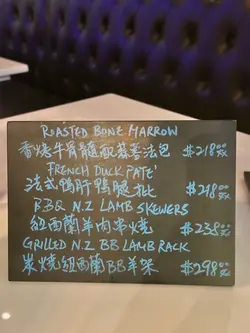 ROASTED BONE MARROW
香烤牛骨髓配蒜蓉法包 $218.00
FRENCH DUCK PATE'
法式鴨肝鴨腿批 $248.00
BBQ N.Z LAMB SKEWERS
紐西蘭羊肉串燒 $238.00
GRILLED N.Z BB LAMB RACK
炭燒紐西蘭BB羊架 $298.00